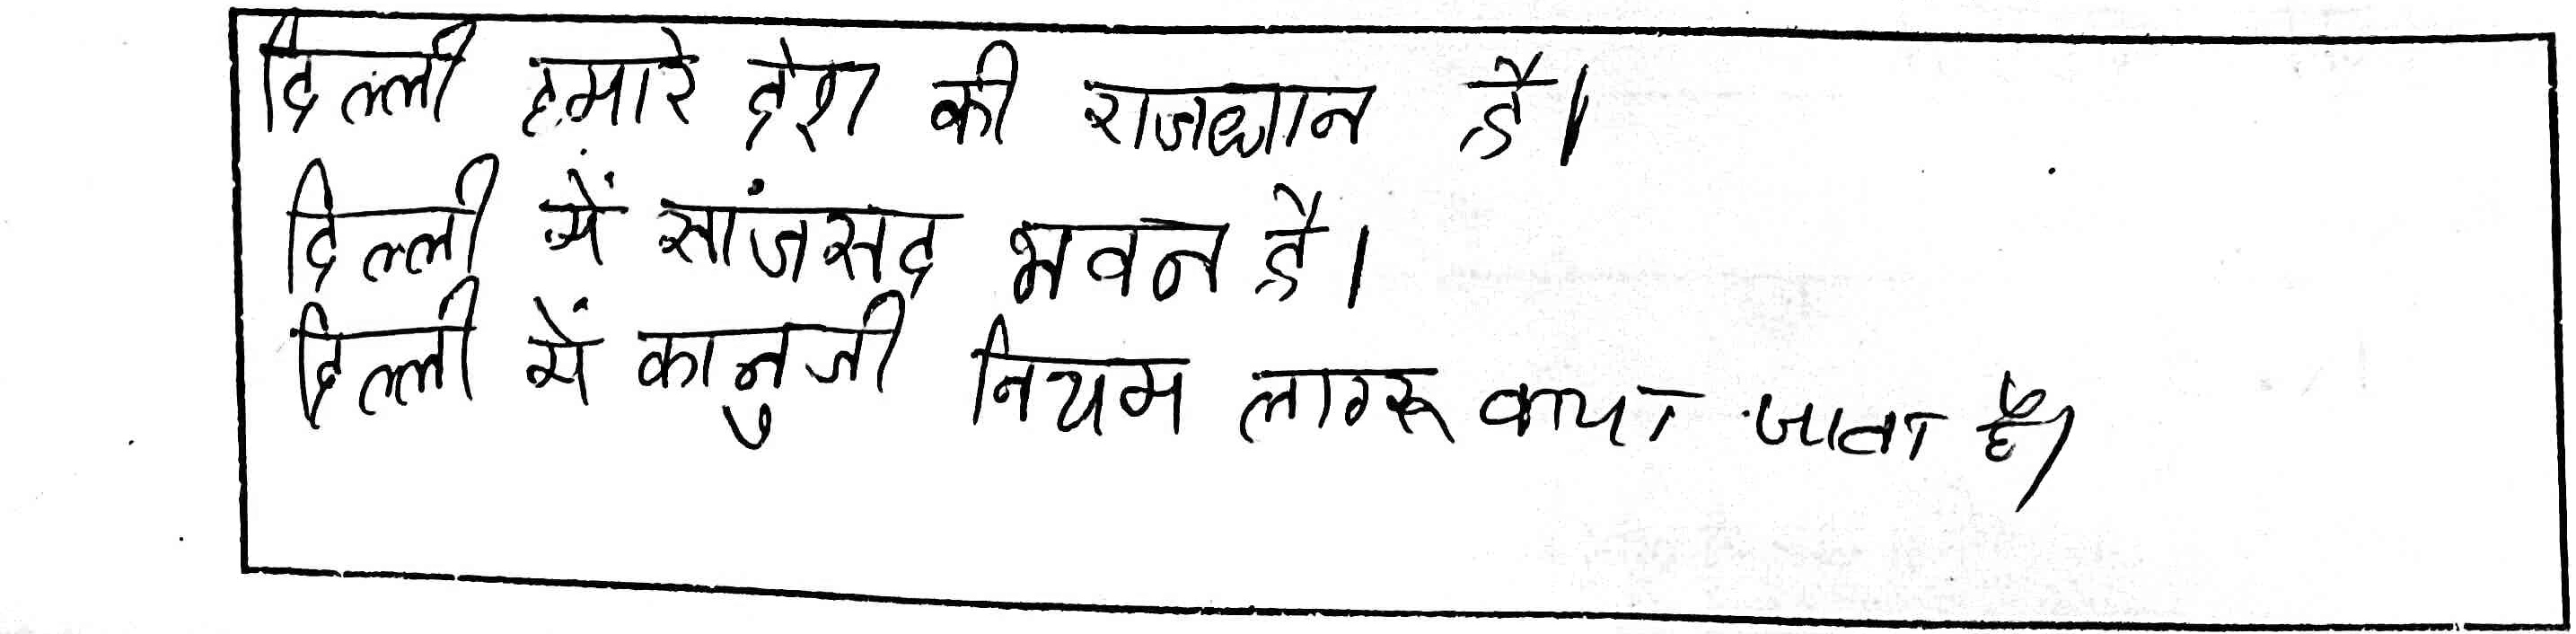 दिल्ली हमारे देश की राजधान है।
दिल्ली में सांजसद भवन है।
दिल्ली में कानुनी नियम लागरू काया जाता है।